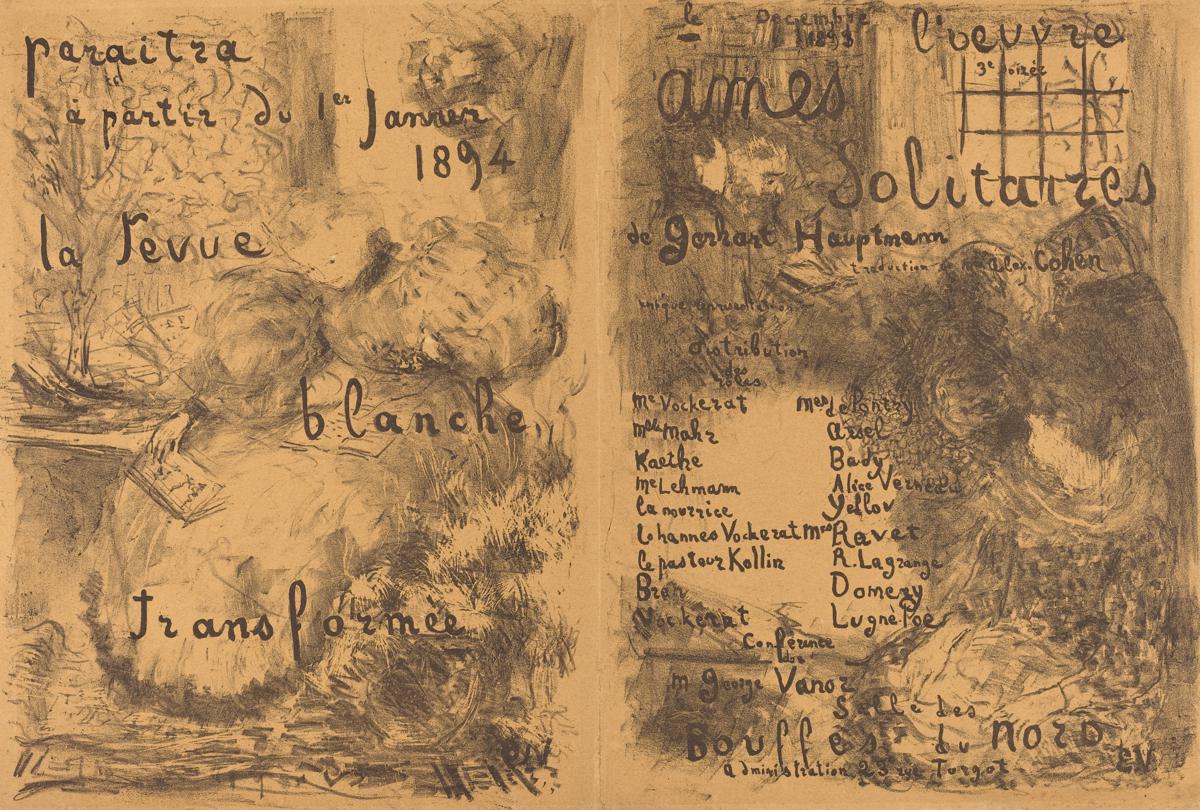 paraitra
à partir du 1er Janvier
1894
la revue
blanche
transformée
EV
le Décembre
1893
l'oeuvre
3e soirée
âmes
Solitaires
de Gerhart Hauptmann
traduction de Mr Alex. Cohen
unique représentation
distribution
des
rôles
Me Vockerat Mes de Pontry
Mlle Mahr Arsel
Kaethe Bady
Me Lehmann Alice Verneau
la nourrice Yellov
Iohannes Vockerat Mrs Ravet
le pasteur Kollin R. Lagrange
Bran Domeny
Vockerat Lugné Poe
Conférence
de
m George Vanor
Salle des
Bouffes du Nord
administration 23 rue Turgot
EV